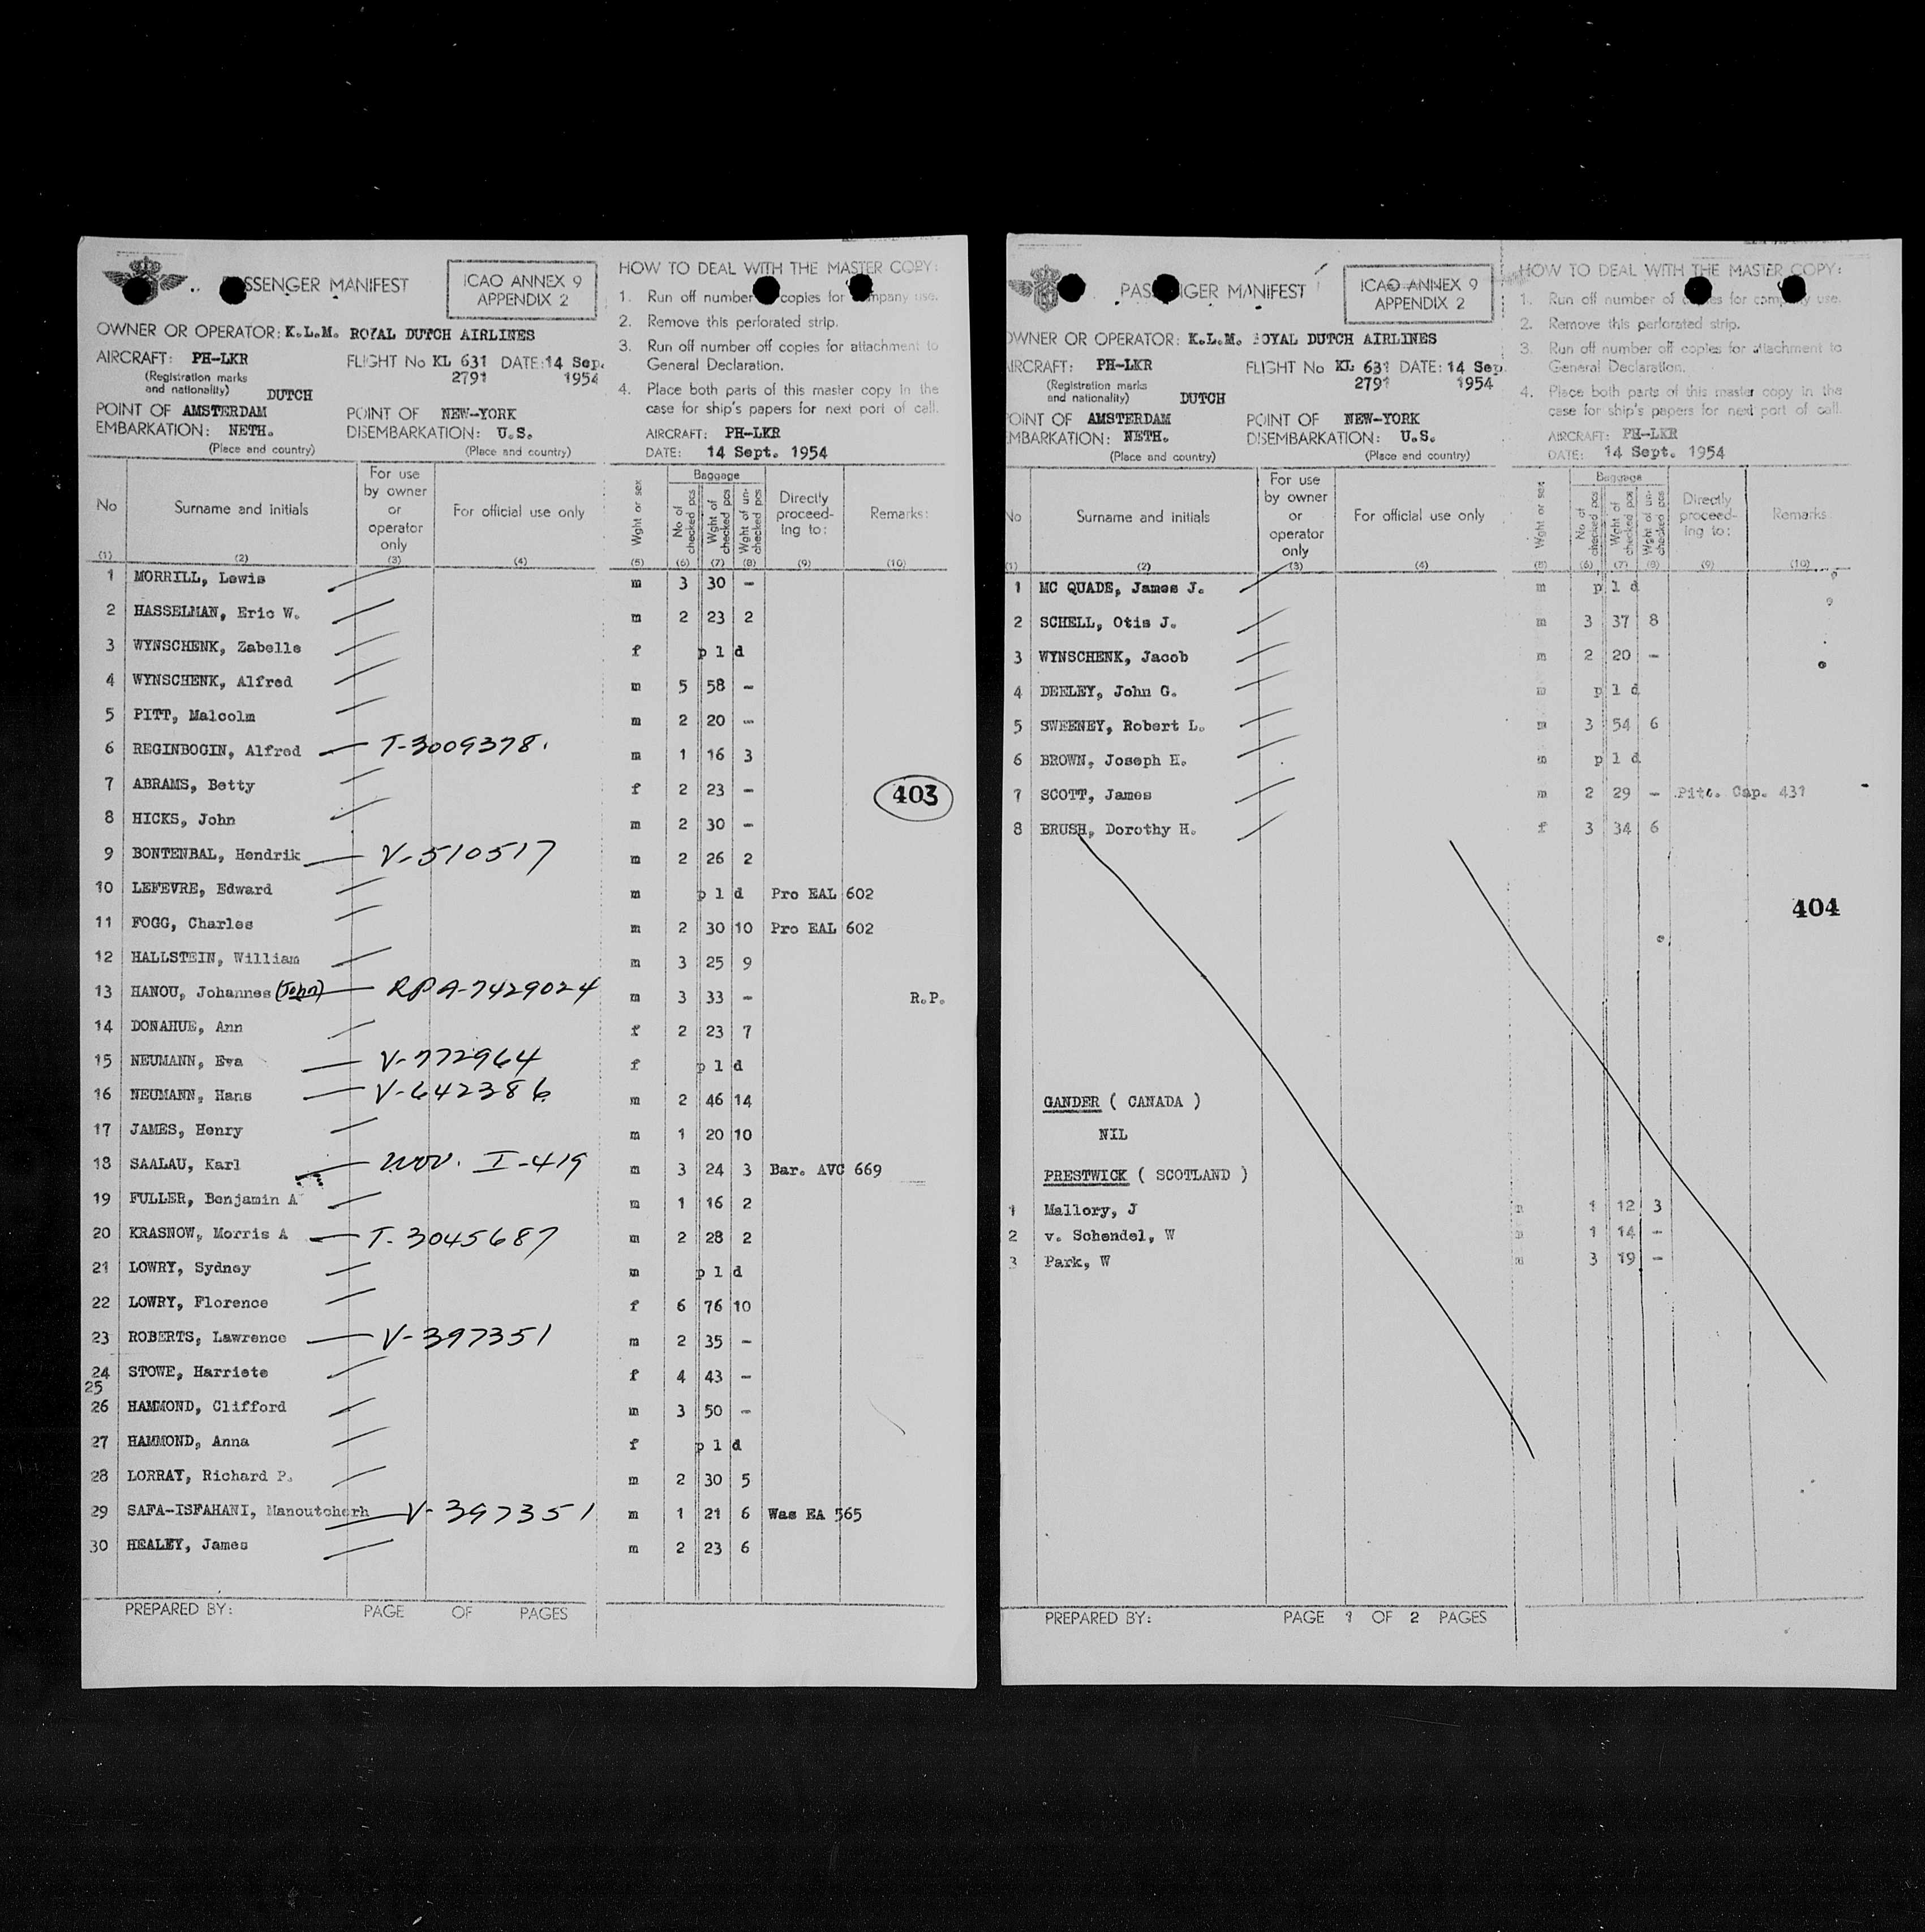 PASSENGER MANIFEST
ICAO ANNEX 9
APPENDIX 2
OWNER OR OPERATOR: K.L.M. ROYAL DUTCH AIRLINES
AIRCRAFT: PH-LKR FLIGHT No KL 631 DATE: 14 Sep.
(Registration marks 2791 1954
and nationality) DUTCH
POINT OF AMSTERDAM POINT OF NEW-YORK
EMBARKATION: NETH. DISEMBARKATION: U.S.
(Place and country) (Place and country)
HOW TO DEAL WITH THE MASTER COPY:
1. Run off number copies for company use.
2. Remove this perforated strip.
3. Run off number off copies for attachment to
General Declaration.
4. Place both parts of this master copy in the
case for ship's papers for next port of call.
AIRCRAFT: PH-LKR
DATE: 14 Sept. 1954
No Surname and initials For use by owner or operator only For official use only Wght or sex Baggage No of checked pcs Wght of checked pcs Wght of un-checked pcs Directly proceed-ing to: Remarks:
(1) (2) (3) (4) (5) (6) (7) (8) (9) (10)
1 MORRILL, Lewis m 3 30 -
2 HASSELMAN, Eric W. m 2 23 2
3 WYNSCHENK, Zabelle f p l d
4 WYNSCHENK, Alfred m 5 58 -
5 PITT, Malcolm m 2 20 -
6 REGINBOGIN, Alfred T-3009378. m 1 16 3
7 ABRAMS, Betty f 2 23 -
403
8 HICKS, John m 2 30 -
9 BONTENBAL, Hendrik V-510517 m 2 26 2
10 LEFEVRE, Edward m p l d Pro EAL 602
11 FOGG, Charles m 2 30 10 Pro EAL 602
12 HALLSTEIN, William m 3 25 9
13 HANOU, Johannes (John) RPA-7429024 m 3 33 - R.P.
14 DONAHUE, Ann f 2 23 7
15 NEUMANN, Eva V-772964 f p l d
16 NEUMANN, Hans V-642386 m 2 46 14
17 JAMES, Henry m 1 20 10
18 SAALAU, Karl I-419 m 3 24 3 Bar. AVC 669
19 FULLER, Benjamin A m 1 16 2
20 KRASNOW, Morris A T-3045687 m 2 28 2
21 LOWRY, Sydney m p l d
22 LOWRY, Florence f 6 76 10
23 ROBERTS, Lawrence V-397351 m 2 35 -
24 STOWE, Harriete f 4 43 -
25
26 HAMMOND, Clifford m 3 50 -
27 HAMMOND, Anna f p l d
28 LORRAY, Richard P. m 2 30 5
29 SAFA-ISFAHANI, Manoutcherh V-397351 m 1 21 6 Was EA 565
30 HEALEY, James m 2 23 6
PREPARED BY: PAGE OF PAGES
PASSENGER MANIFEST
ICAO ANNEX 9
APPENDIX 2
OWNER OR OPERATOR: K.L.M. ROYAL DUTCH AIRLINES
AIRCRAFT: PH-LKR FLIGHT No KL 631 DATE: 14 Sep.
(Registration marks 2791 1954
and nationality) DUTCH
POINT OF AMSTERDAM POINT OF NEW-YORK
EMBARKATION: NETH. DISEMBARKATION: U.S.
(Place and country) (Place and country)
HOW TO DEAL WITH THE MASTER COPY:
1. Run off number of copies for company use.
2. Remove this perforated strip.
3. Run off number off copies for attachment to
General Declaration.
4. Place both parts of this master copy in the
case for ship's papers for next port of call.
AIRCRAFT: PH-LKR
DATE: 14 Sept. 1954
No Surname and initials For use by owner or operator only For official use only Wght or sex Baggage No of checked pcs Wght of checked pcs Wght of un-checked pcs Directly proceed-ing to: Remarks
(1) (2) (3) (4) (5) (6) (7) (8) (9) (10)
1 MC QUADE, James J. m p l d
2 SCHELL, Otis J. m 3 37 8
3 WYNSCHENK, Jacob m 2 20 -
4 DEELEY, John G. m p l d
5 SWEENEY, Robert L. m 3 54 6
6 BROWN, Joseph H. m p l d
7 SCOTT, James m 2 29 - Pitt. Cap. 431
8 BRUSH, Dorothy H. f 3 34 6
404
GANDER ( CANADA )
NIL
PRESTWICK ( SCOTLAND )
1 Mallory, J m 1 12 3
2 v. Schendel, W m 1 14 -
3 Park, W m 3 19 -
PREPARED BY: PAGE 1 OF 2 PAGES